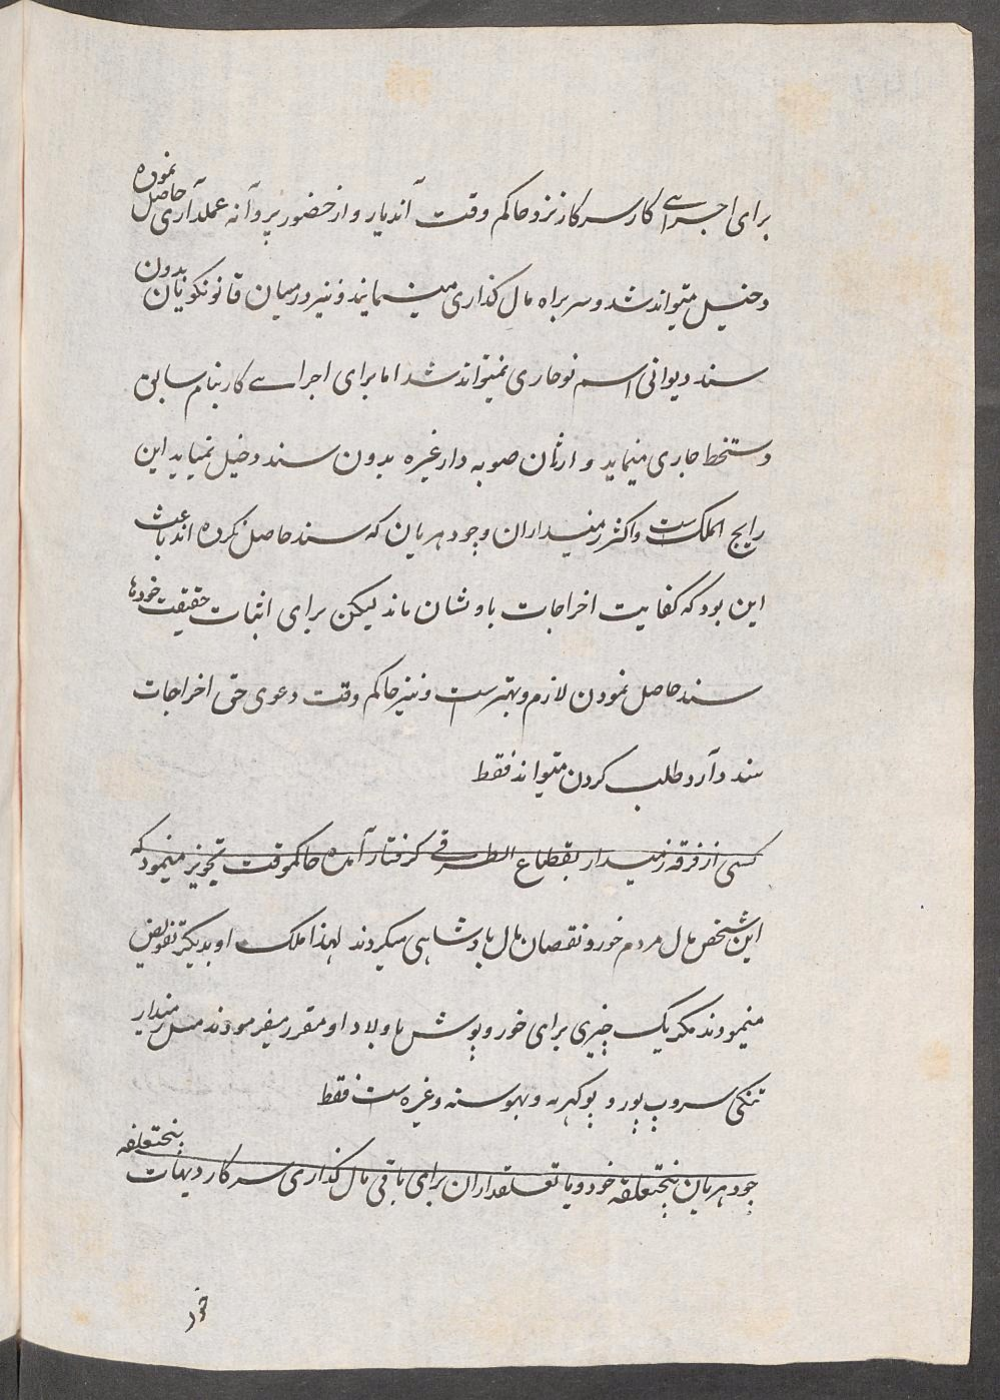 برای اجرای کار سرکار نزد حاکم وقت آندیار و از حضور پروانه عملداری حاصل نموده
دخیل میتواند شد و سربراه مال کذاری مینمایند و نیز درمیان قانونکویان بدون
سند دیوانی اسم نو جاری نمیتواند شد اما برای اجرای کار بنام سابق
دستخط جاری مینماید و ارثان صوبه دار غیره بدون سند دخیل نمیاید این
رایج الملک ست و اکثر زمینداران و چودهریان که سند حاصل نکرده اند باعث
این بود که کفایت اخراجات باوشان ماند لیکن برای اثبات حقیقت خودها
سند حاصل نمودن لازم و بهتر ست و نیز حاکم وقت دعوی حق اخراجات
سند دارد طلب کردن میتواند فقط
کسی از فرقه زمیندار بقطاع الطریقی کرفتار آمده حاکموقت تجویز مینمود که
این شخص مال مردم خورد و نقصان مال بادشاهی میکردند لهذا ملک او بدیکر تفویض
مینمودند مکر یک چیزی برای خور و پوش باولاد او مقرر میفرمودند مثل زمیندار
تنکی سروپ پور و پوکهره و بهوسته و غیره ست فقط
چودهریان پنجتعلقه خود و یا تعلقداران برای باقی مال کذاری سرکار دیهات پنجتعلقه
خود